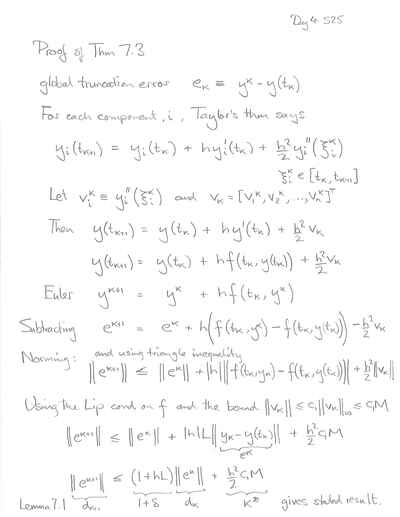 Day 4 S25
Proof of Thm 7.3
global truncation error e_k ≡ y^k - y(t_k)
For each component, i, Taylor's thm says
y_i(t_{k+1}) = y_i(t_k) + hy_i'(t_k) + h²/2 y_i''(ξ_i^k)
ξ_i^k ∈ [t_k, t_{k+1}]
Let v_i^k ≡ y_i''(ξ_i^k) and v_k = [v_1^k, v_2^k, .., v_n^k]^T
Then y(t_{k+1}) = y(t_k) + hy'(t_k) + h²/2 v_k
y(t_{k+1}) = y(t_k) + hf(t_k, y(t_k)) + h²/2 v_k
Euler y^{k+1} = y^k + hf(t_k, y^k)
Subtracting e^{k+1} = e^k + h(f(t_k, y^k) - f(t_k, y(t_k))) - h²/2 v_k
Norming: and using triangle inequality
||e^{k+1}|| ≤ ||e^k|| + |h| ||f(t_k, y_k) - f(t_k, y(t_k))|| + h²/2 ||v_k||
Using the Lip cond on f and the bound ||v_k|| ≤ c_1||v_k||_∞ ≤ c_1M
||e^{k+1}|| ≤ ||e^k|| + |h|L||y_k - y(t_k)|| + h²/2 c_1M
e^k
||e^{k+1}|| ≤ (1+hL)||e^k|| + h²/2 c_1M
Lemma 7.1 d_{k+1} 1+δ d_k K* gives stated result.